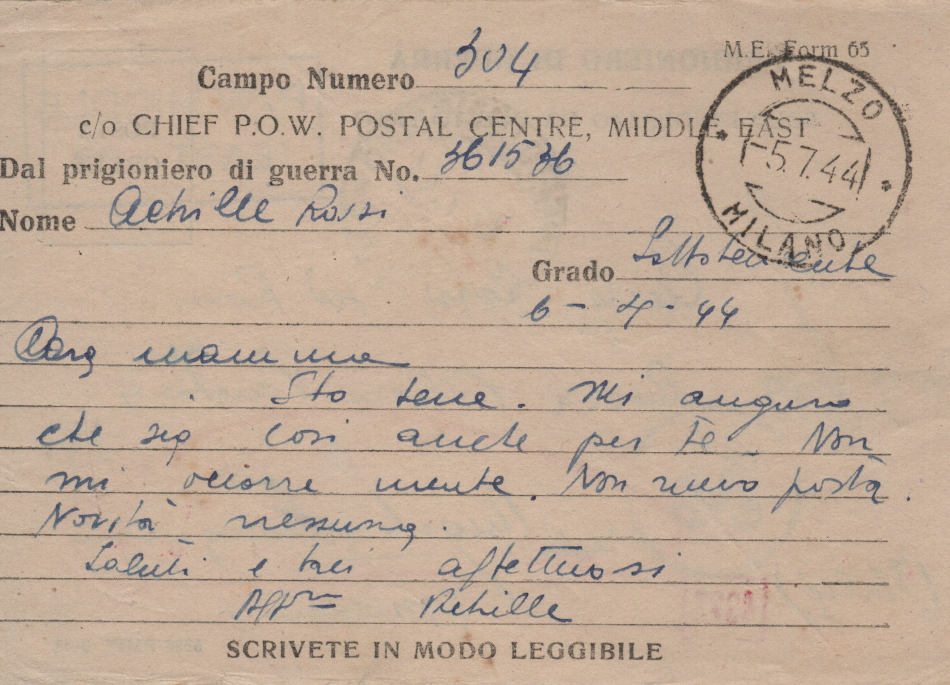 M.E. Form 65
Campo Numero 304
c/o CHIEF P.O.W. POSTAL CENTRE, MIDDLE EAST
MELZO
-5.7.44
MILANO
Dal prigioniero di guerra No. 361536
Nome Achille Rossi
Grado Sottotenente
6-4-44
Cara mamma
Sto bene. Mi auguro
che sia così anche per te. Non
mi occorre niente. Non ricevo posta.
Novità nessuna.
Saluti e baci affettuosi
Aff.mo Achille
SCRIVETE IN MODO LEGGIBILE